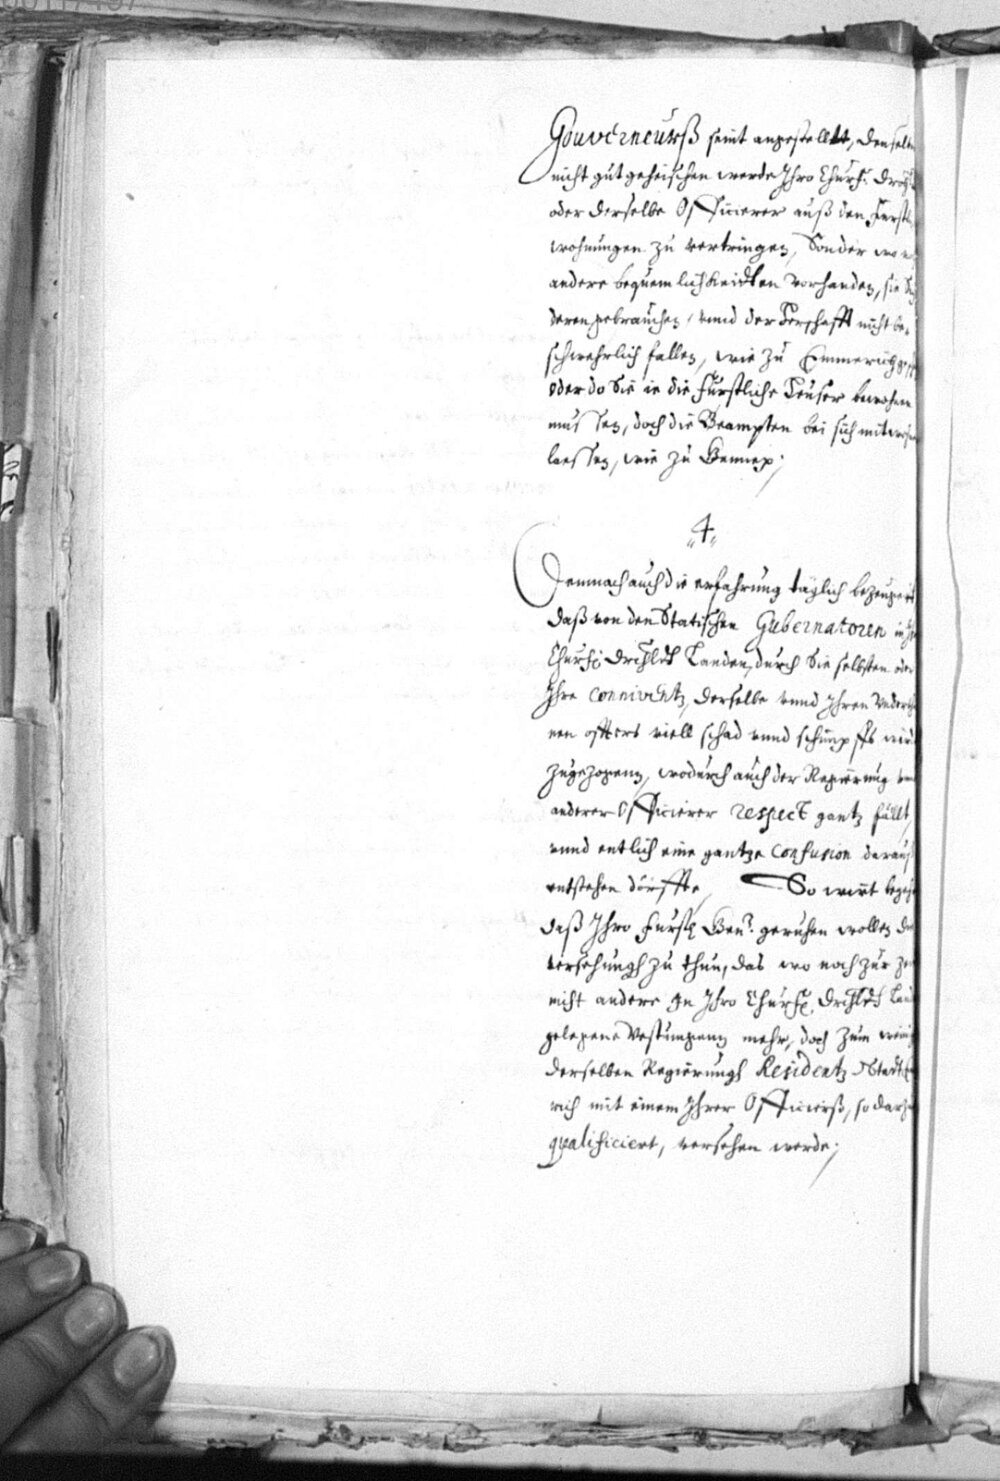 Gouverneurß seint angestellt, denselb
nicht gut geheischen werde Ihro Churf: Drchl
oder derselbe Officierer auß den Furstl
wohnungen zu vertringen, Sonder wo
andere bequemlichkeidten vorhanden, sie
deren gebrauchen, unnd der nicht be-
schwehrlich fallen, wie zu Emmerich
oder do Sie ie die Furstliche Heuser bewohnen
mussen, doch die Beampten bei sich mit
laessen, wie zu Gennep;
4
Demnach auch die erfahrung täglich bezeuget
daß von den Statischen Gubernatoren in
Churf: Drchldt Landen, durch Sie selbsten oder
Ihre conniventz, derselbe unnd Ihren Undertha
nen offters viell schad unnd schimpffs
zugezogenn, wodurch auch der Regierung
anderer Officierer respect gantz fällt,
unnd entlich eine gantze confusion darauß
entstehen dörffte, So wirt
daß Ihro Furstl Gen: geruhen wollen die
versehungh zu thun, das wo noch zur Zeit
nicht andere In Ihro Churfl. Drchldt
gelegene Vestungenn mehr, doch zum
derselben Regierungh Residentz Stadt
rich mit einem Ihrer Officierß, so
qualificiert, versehen werde;